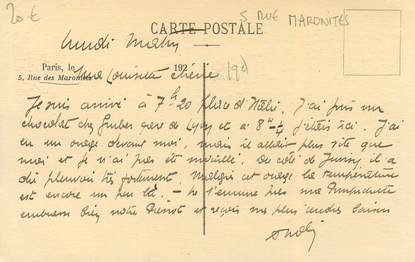 20 €
5 RUE MARONITES
CARTE POSTALE
Lundi Matin
Paris, le 192
5, Rue des Maronites
Ma Louisette chérie
Je suis arrivé à 7h 20 place d'Italie. J'ai pris un
chocolat chez Gruber gare de Lyon et à 8h j'étais ici. J'ai
eu un orage devant moi, mais il allait plus vite que
moi et je n'ai pas été mouillé. Du coté de Juvisy il a
dû pleuvoir très fortement. Malgré cet orage la température
est encore un peu là. - Ne t'ennuie pas ma
embrasse bien notre et reçois ma plus tendres baisers